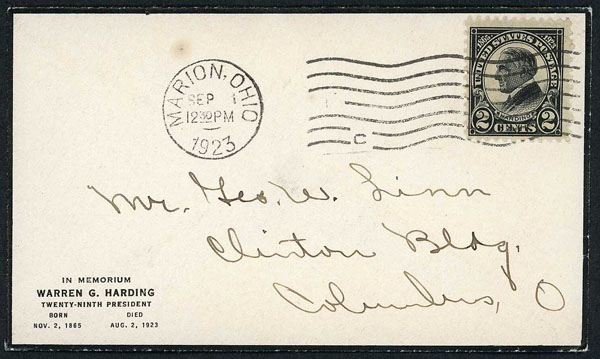 MARION, OHIO
SEP 1
12 30 PM
1923
C
1865 1923
UNITED STATES POSTAGE
HARDING
2 CENTS 2
Mr. Geo. W. Linn
Clinton Bldg.
Columbus, O
IN MEMORIUM
WARREN G. HARDING
TWENTY-NINTH PRESIDENT
BORN DIED
NOV. 2, 1865 AUG. 2, 1923